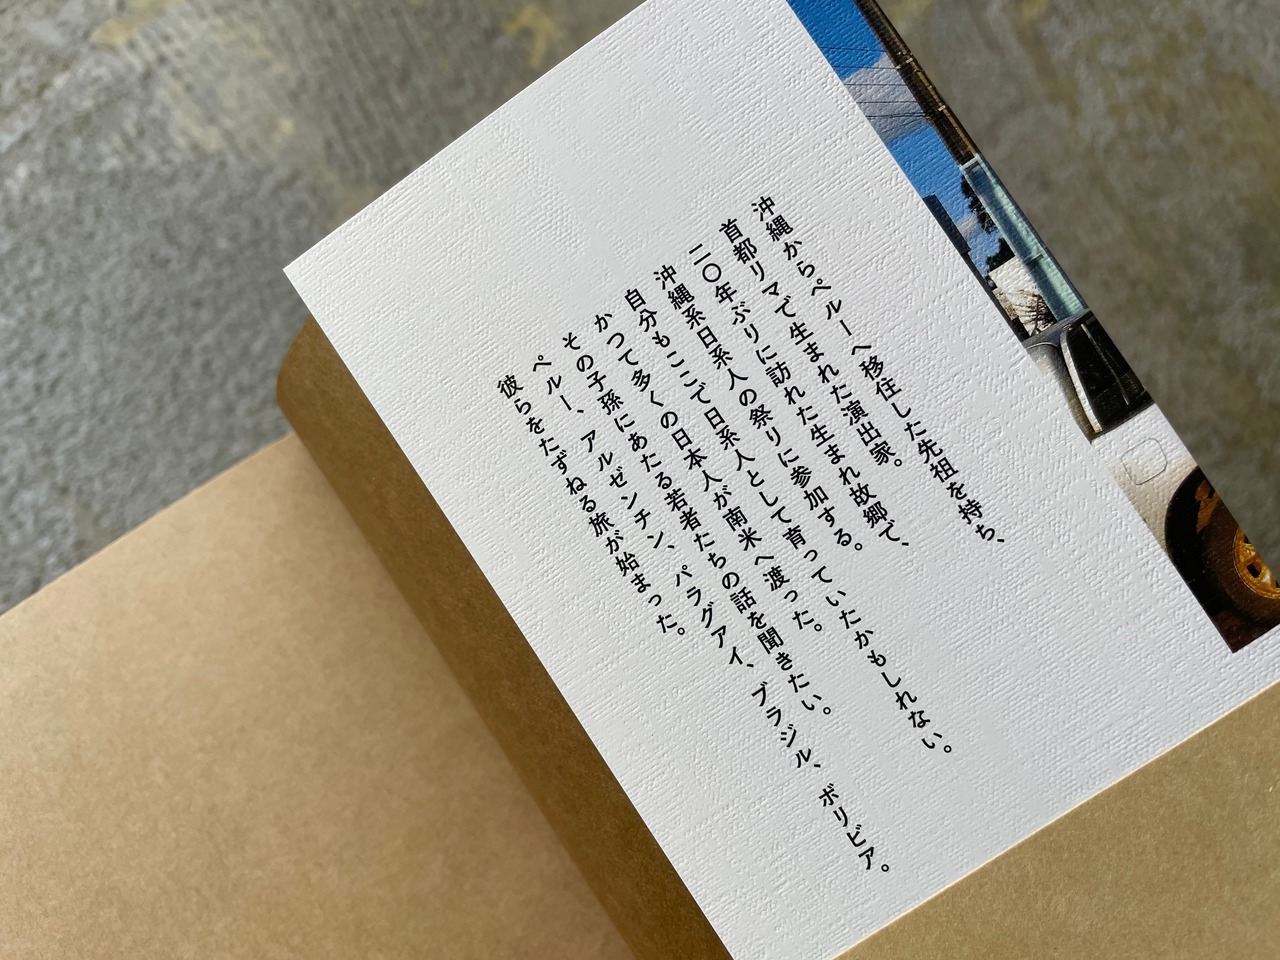 沖縄からペルーへ移住した先祖を持ち、
首都リマで生まれた演出家。
二〇年ぶりに訪れた生まれ故郷で、
沖縄系日系人の祭りに参加する。
自分もここで日系人として育っていたかもしれない。
かつて多くの日本人が南米へ渡った。
その子孫にあたる若者たちの話を聞きたい。
ペルー、アルゼンチン、パラグアイ、ブラジル、ボリビア。
彼らをたずねる旅が始まった。